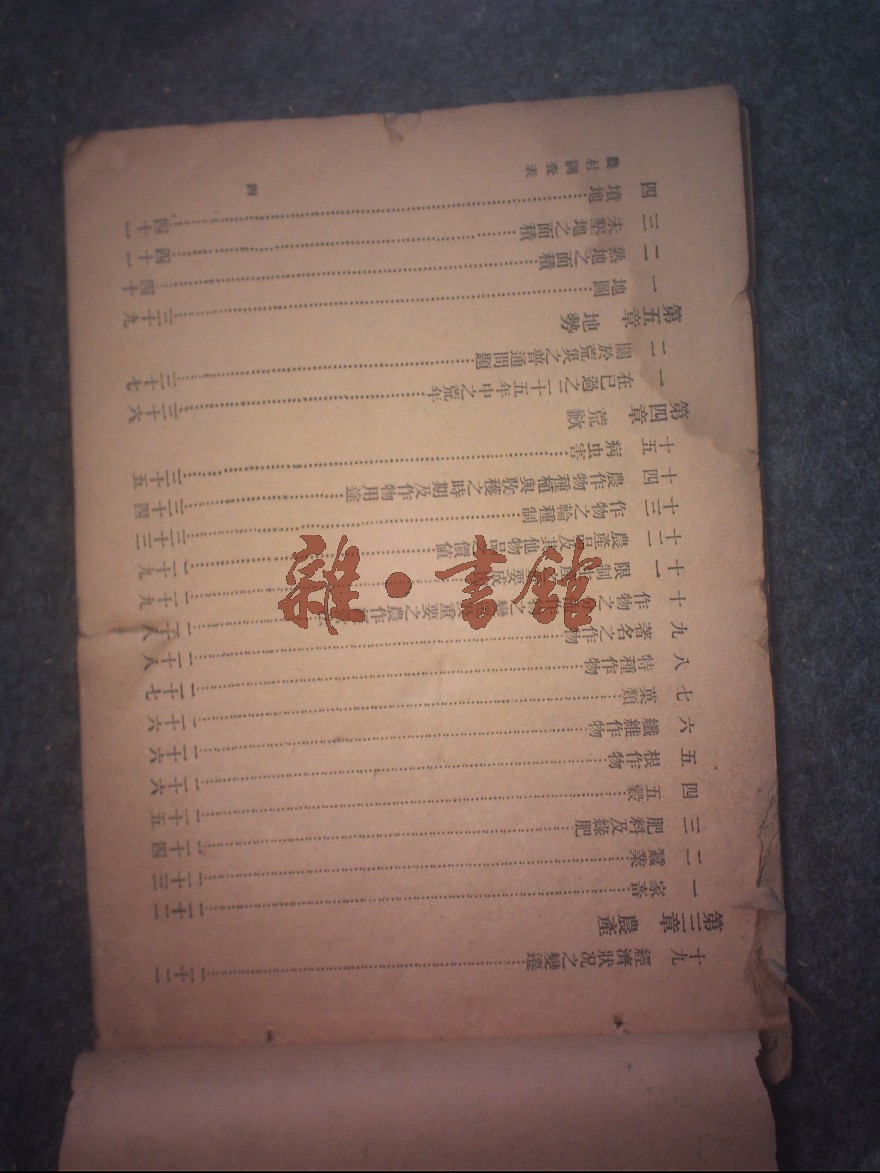 十九 經濟狀況之變遷 二十二
第三章 農產
一 家畜 二十二
二 蠶業 二十三
三 肥料及綠肥 二十四
四 五穀 二十五
五 根作物 二十六
六 纖維作物 二十六
七 菓類 二十六
八 特種作物 二十七
九 著名之作物 二十八
十 作物之 變 重要之農作 二十八
十一 限制 要 二十九
十二 農產品及其他物品之價値 二十九
十三 作物之輪種制 三十三
十四 農作物種植與收穫之時期及作物用途 三十四
十五 病虫害 三十五
第四章 荒歉
一 在已過之二十五年中之荒年 三十六
二 關於荒災之普通問題 三十七
第五章 地勢
一 地圖 三十九
二 熟地之面積 四十
三 未墾地之面積 四十一
四 墳地 四十一
農村調查表
四
雜·書館